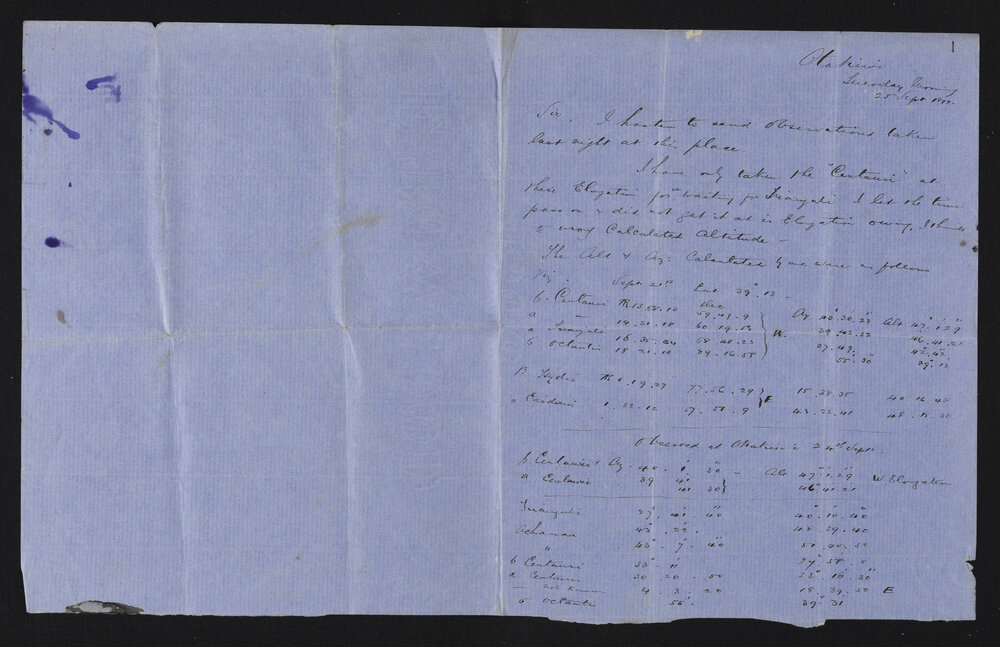 1
Otakiwi
Tuesday Evening
25 Sept
Sir, I hasten to send observations taken
last night at this place.
I have only taken the "Centauri" at
there Elongation for waiting for Trianguli I let the time
pass on & did not get it at in Elongation owing, I think
to wrong Calculated Altitude -
The Alt & Az: Calculated by me were as follows
Viz. Sept 21st Lat 39° 13
β. Centauri 13.55.10 59.47.9 Az 40.30.28 Alt 47.1.29
a 14.31.18 60.19. W. 39.42.32 46.41.21
a Trianguli 16.35.44 68.48.23 27.49 42.42
σ Octantis 18.21.10 89.16.58 55.30 39.12
β Hydri 1.9.37 77.56.29 E 15.39.35 40.16.48
a Eridani 1.33.12 57.51.9 43.22.41 48.18.20
Observed at 24th Sept.
β. Centauri Az. 40.8.30 - Alt 47.1.29 W Elongation
a Centauri 39 41 46.41.21
41 30
Trianguli 27.41.40 40.10.40
Achanar 43.22. 48.39.40
" 43.7.40 51.40.50
β Centauri 33.11 29.58.0
a Centauri 30.20.50 23.19.30
not known 4.3.20 18.39.50 E
σ Octantis 55. 39.31